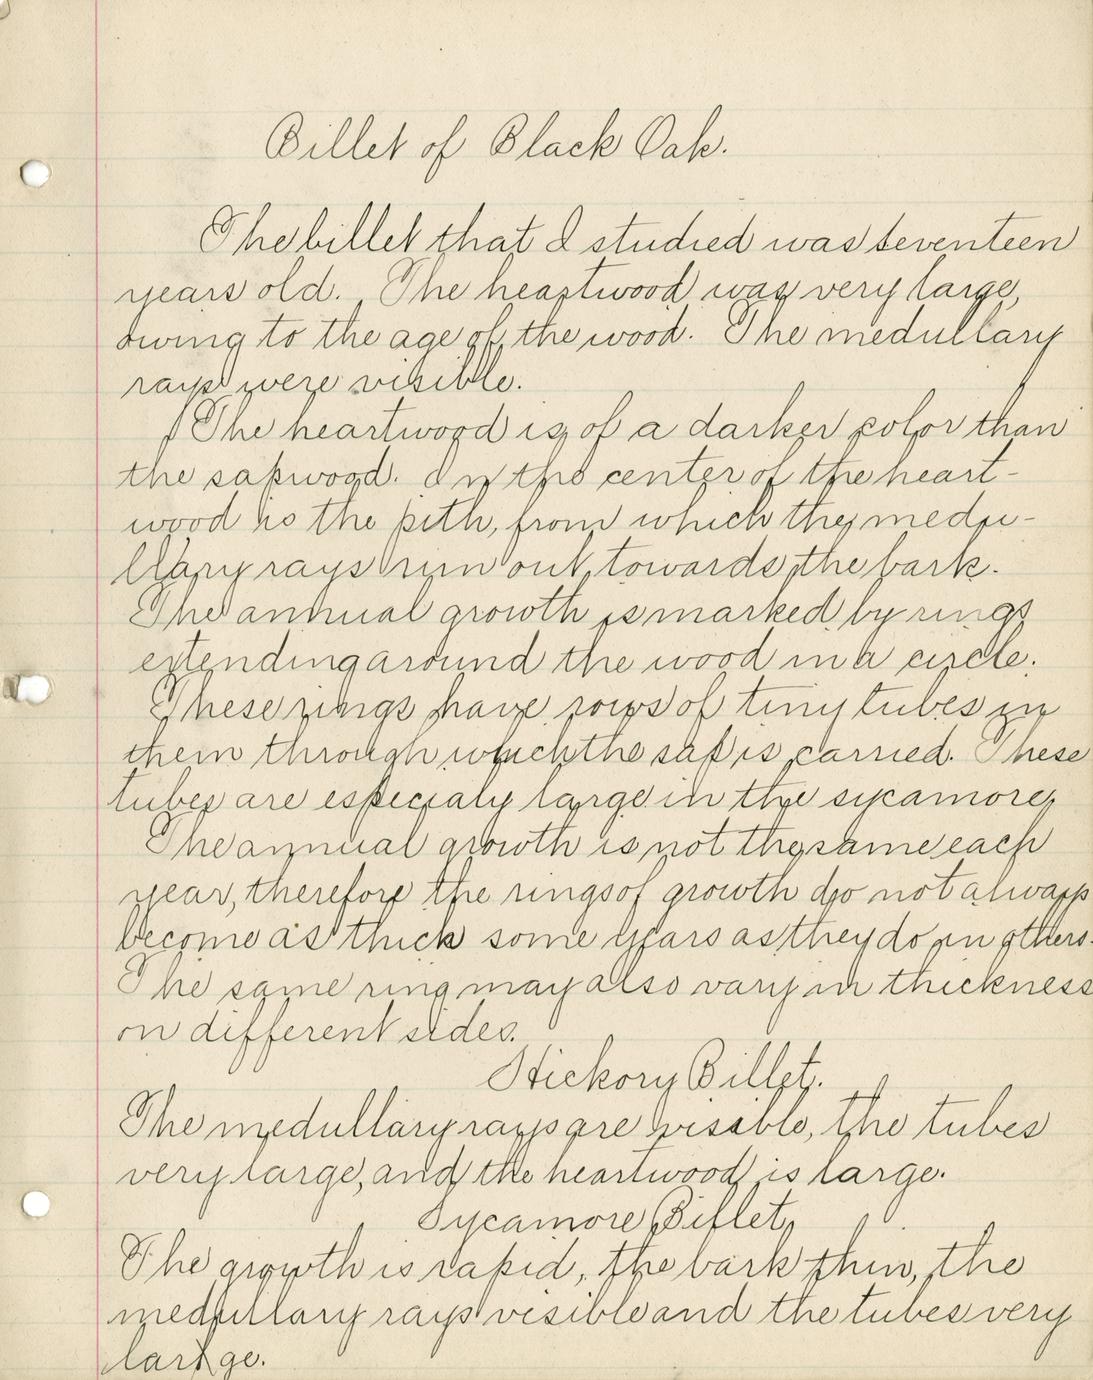 Billet of Black Oak.
The billet that I studied was seventeen
years old. The heartwood was very large,
owing to the age of the wood. The medullary
rays were visible.
The heartwood is of a darker color than
the sapwood. In the center of the heart-
wood is the pith, from which the medu-
llary rays run out towards the bark.
The annual growth is marked by rings
extending around the wood in a circle.
These rings have rows of tiny tubes in
them through which the sap is carried. These
tubes are especialy large in the sycamore,
The annual growth is not the same each
year, therefore the rings of growth do not always
become as thick some years as they do in others.
The same ring may also vary in thickness
on different sides.
Hickory Billet.
The medullary rays are visible, the tubes
very large, and the heartwood is large.
Sycamore Billet.
The growth is rapid, the bark thin, the
medullary rays visible and the tubes very
large.